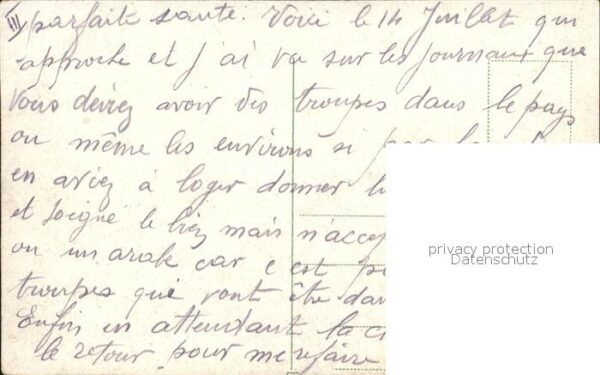 III) parfaite santé. Voici le 14 Juillet qui
approche et j'ai vu sur les journaux que
vous deviez avoir des troupes dans le pays
ou même les environs si par
en aviez à loger donner
et soigné le bien mais n'accep
ou un arabe car c est
troupes qui vont être dan
Enfin en attendant la
le retour pour me refaire
privacy protection
Datenschutz